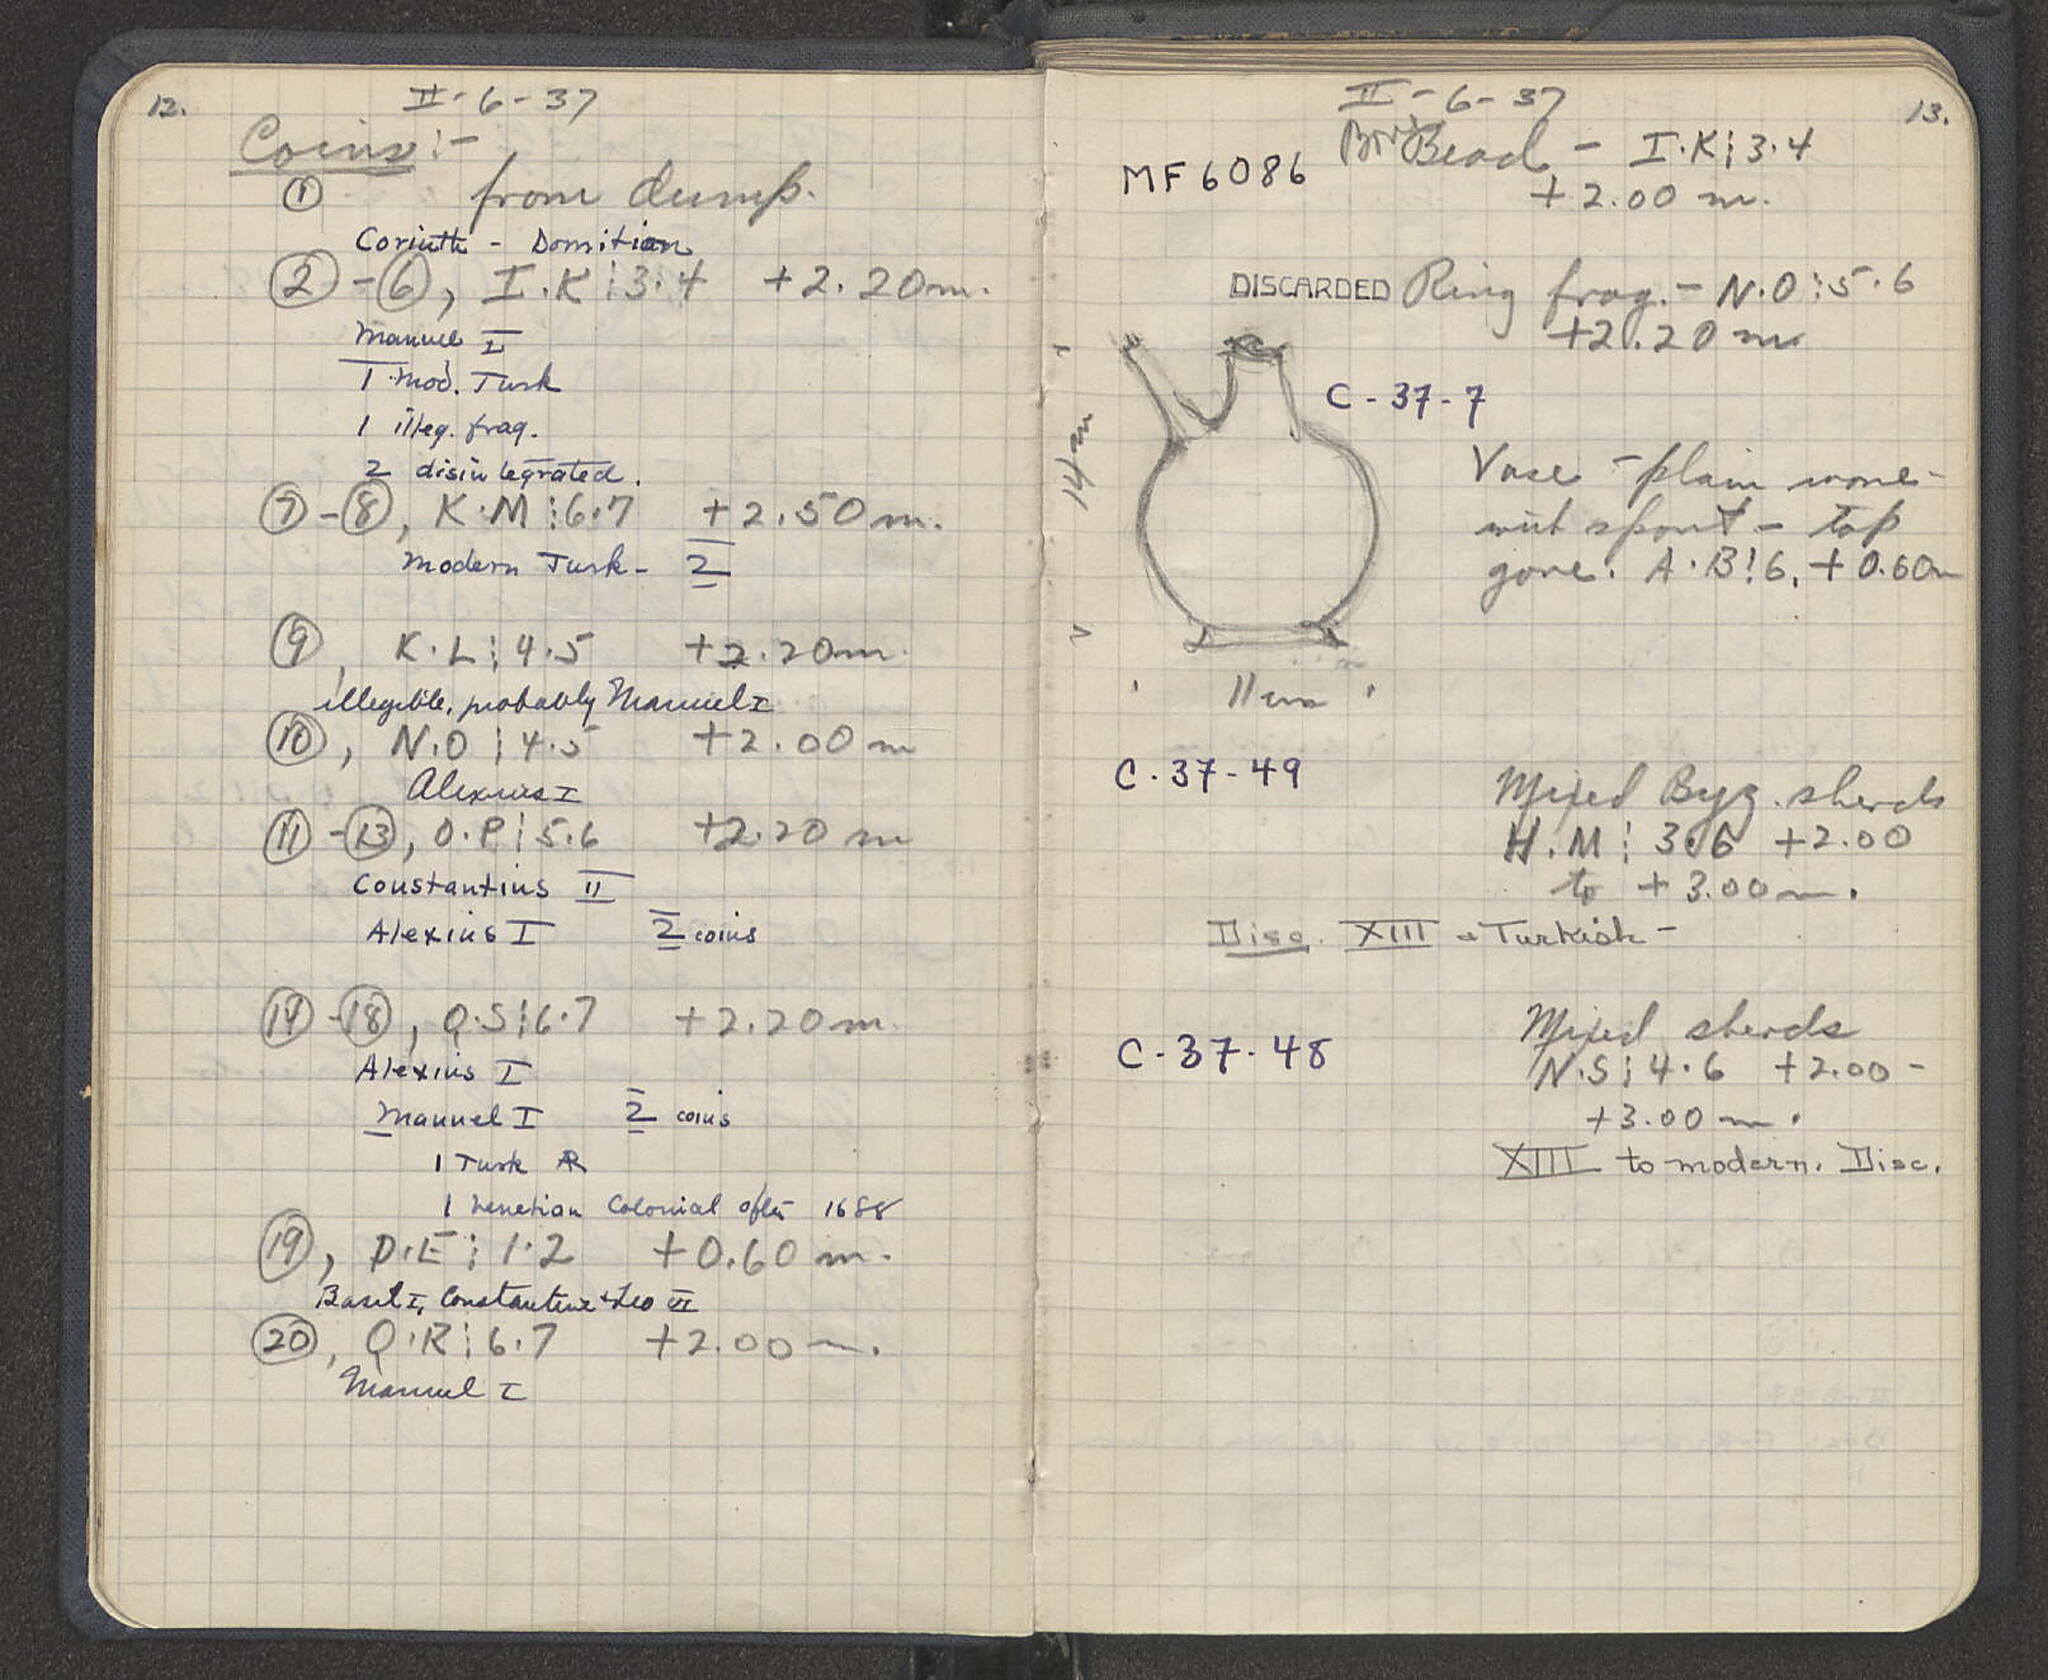 12.
II-6-37
Coins:-
① from dump.
Corinth - Domitian
②-⑥, I.K⋮3.4 +2.20m.
Manuel I
1 mod. Turk
1 illeg. frag.
2 disintegrated.
⑦-⑧, K.M⋮6.7 +2.50m.
Modern Turk- 2
⑨, K.L⋮4.5 +2.20m.
illegible, probably Manuel I
⑩, N.O⋮4.5 +2.00m
Alexius I
⑪-⑬, O.P⋮5.6 +2.20m
Constantius II
Alexius I 2 coins
⑭-⑱, Q.S⋮6.7 +2.20m.
Alexius I
Manuel I 2 coins
1 Turk AR
1 Venetian Colonial after 1688
⑲, D.E⋮1.2 +0.60m.
Basil I, Constantine + Leo VI
⑳, Q.R⋮6.7 +2.00m.
Manuel I
13.
II-6-37
MF 6086 Bead - I.K⋮3.4
+2.00 m.
DISCARDED Ring frag. - N.O⋮5.6
+2.20 m
C-37-7
14 cm
Vase - plain ware -
with spout - top
gone. A.B⋮6, +0.60m
11 cm
C-37-49 Mixed Byz. sherds
H.M⋮3.6 +2.00
to +3.00m.
Disc. XIII + Turkish -
C-37-48 Mixed sherds
N.S⋮4.6 +2.00-
+3.00m.
XIII to modern. Disc.